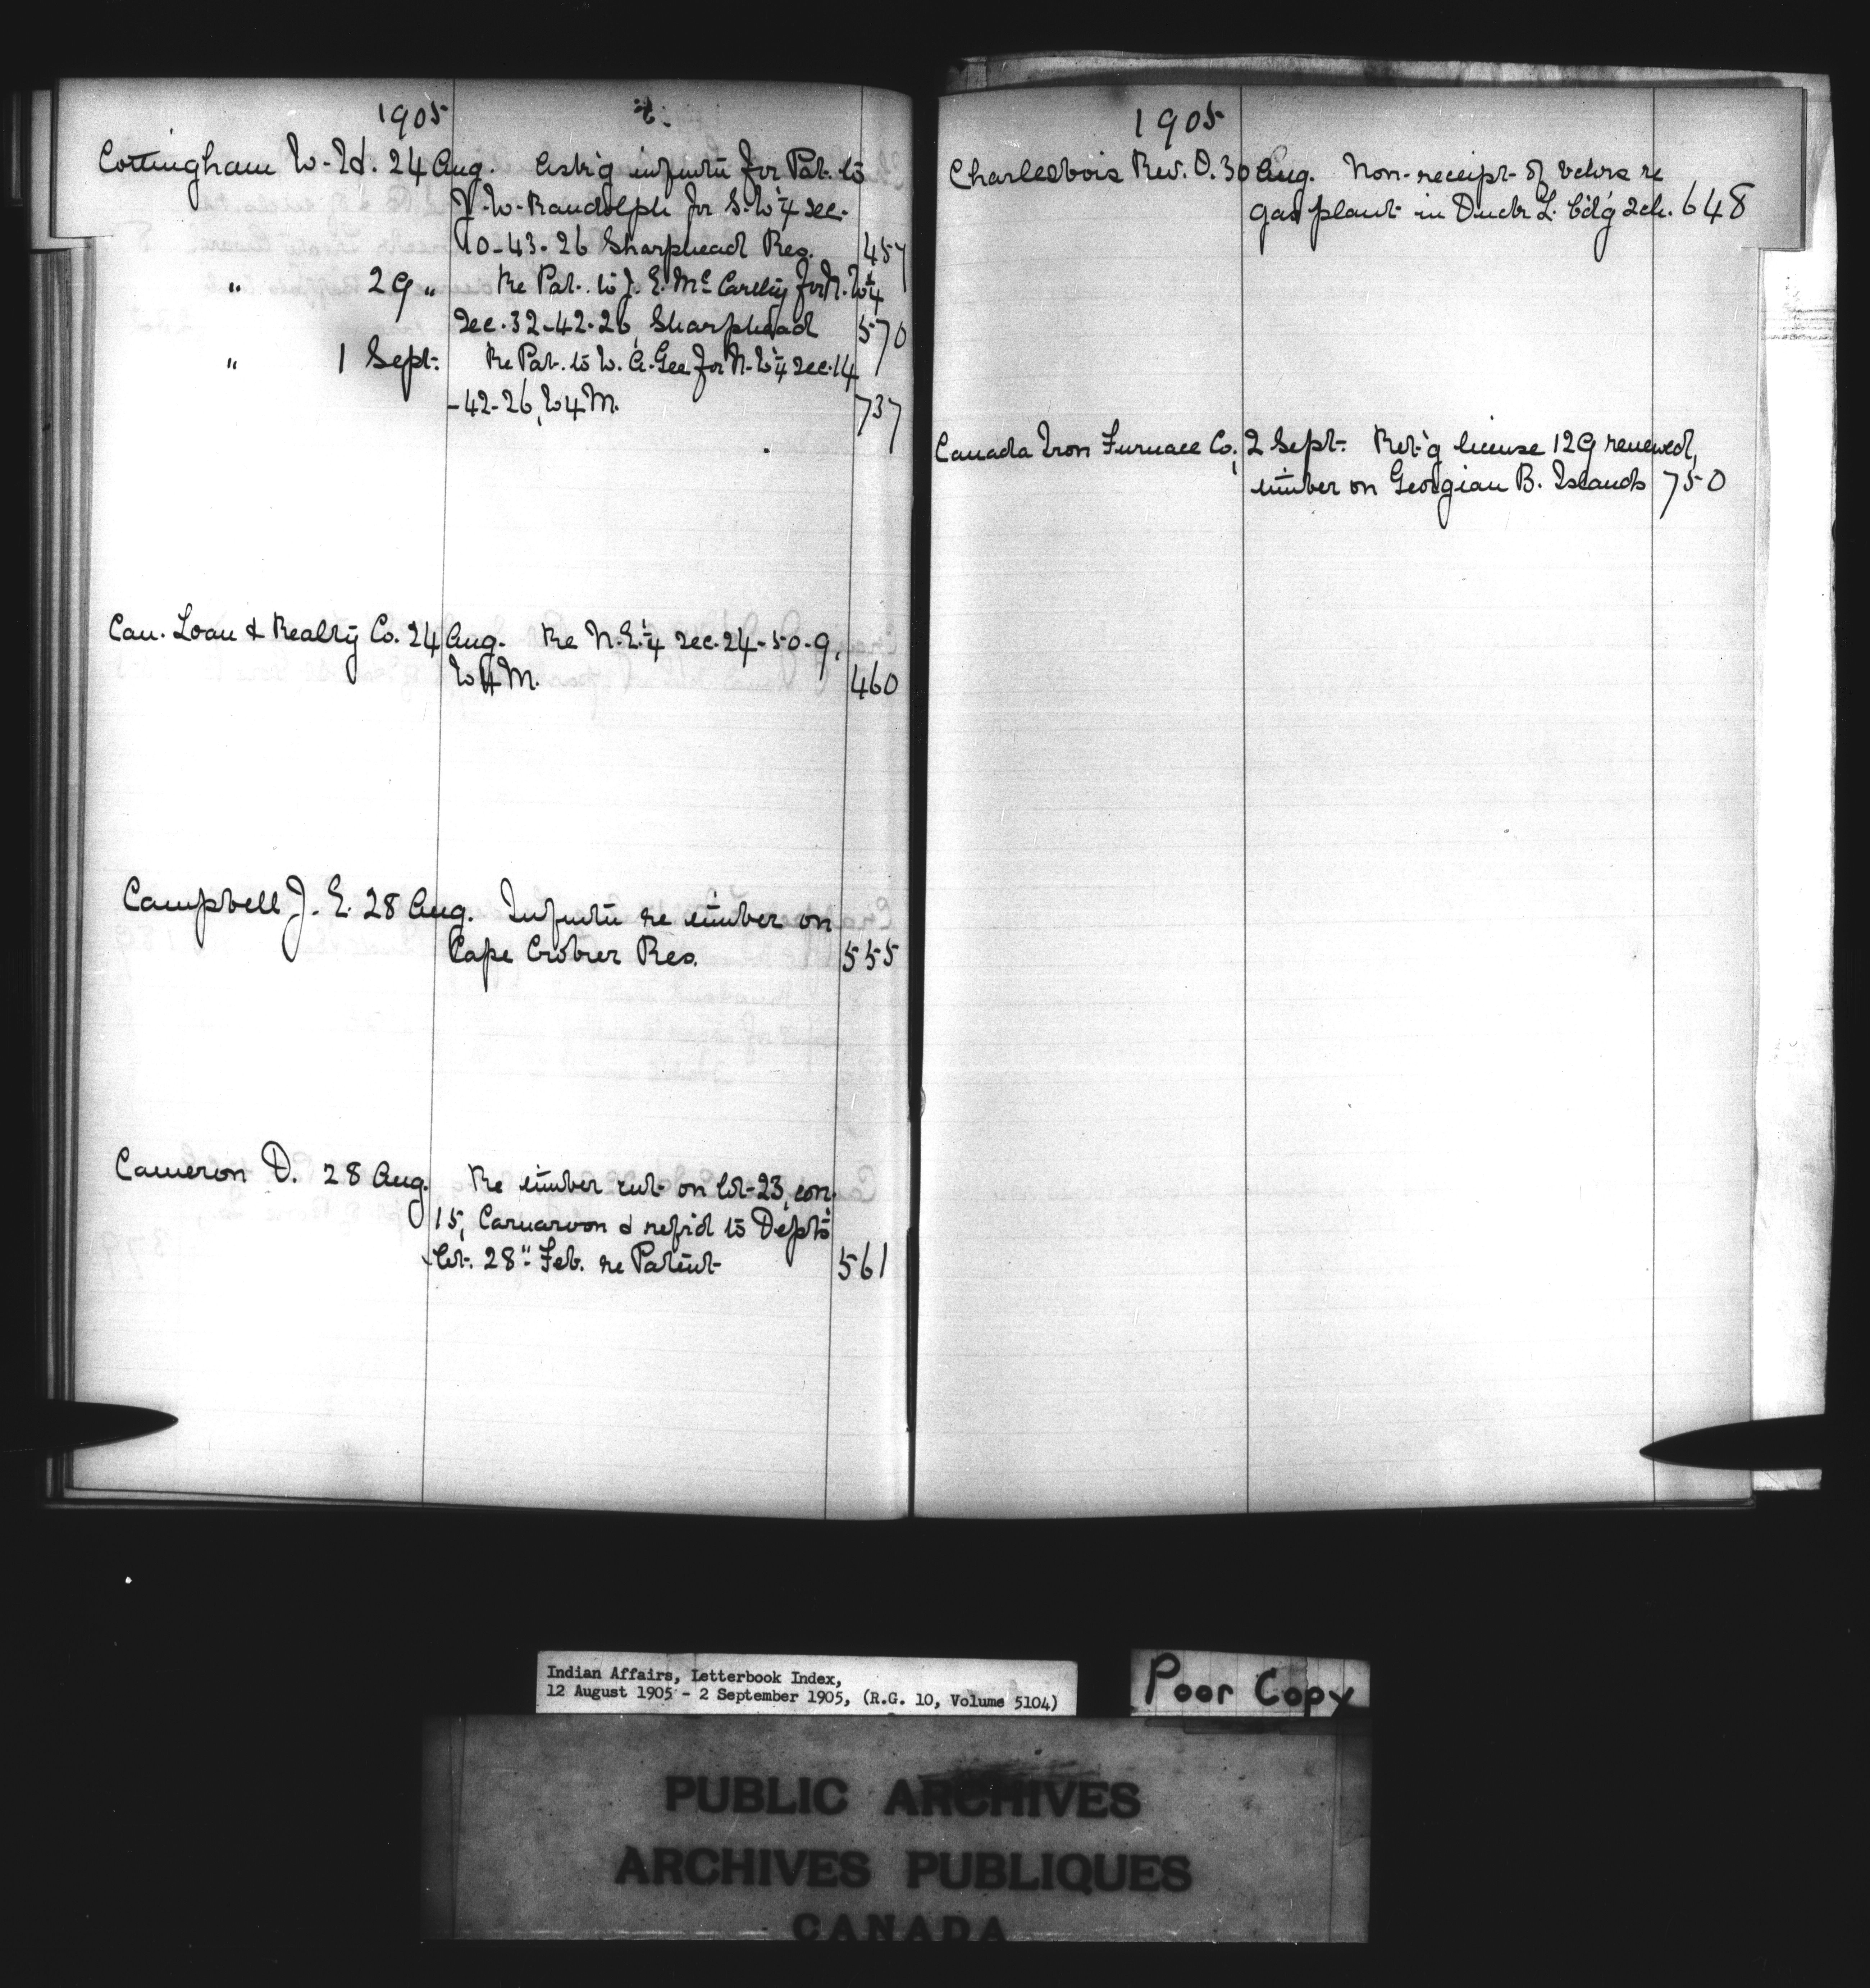 1905
Cottingham W. Hd. 24 Aug. Ask'g inf'mtn for Pat. to
J. W. Randolph for S. W ¼ sec.
10-43-26 Sharphead Res. 457
" 29 " Re Pat. to J. E. McCarthy for N. W ¼
Sec. 32-42-26 Sharphead 570
" 1 Sept. Re Pat. to W. A. Gee for N. W ¼ sec. 14
-42-26, W 4 M. 737
Can. Loan & Realty Co. 24 Aug. Re N. E. ¼ sec. 24-50-9,
W 4 M. 460
Campbell J. E. 28 Aug. Inf'mtn re timber on
Cape Croker Res. 555
Cameron D. 28 Aug. Re timber cut on lot 23, con.
15, Carnarvon & ref'd to Dept's
let. 28" Feb. re Patent 561
1905
Charlesbois Rev. O. 30 Aug. Non-receipt of vchrs re
gas plant in Duck L. b'd'g sch. 648
Canada Iron Furnace Co., 2 Sept. Ret'g license 129 renewed,
timber on Georgian B. Islands 750
Indian Affairs, Letterbook Index,
12 August 1905 - 2 September 1905, (R.G. 10, Volume 5104)
Poor Copy
PUBLIC ARCHIVES
ARCHIVES PUBLIQUES
CANADA